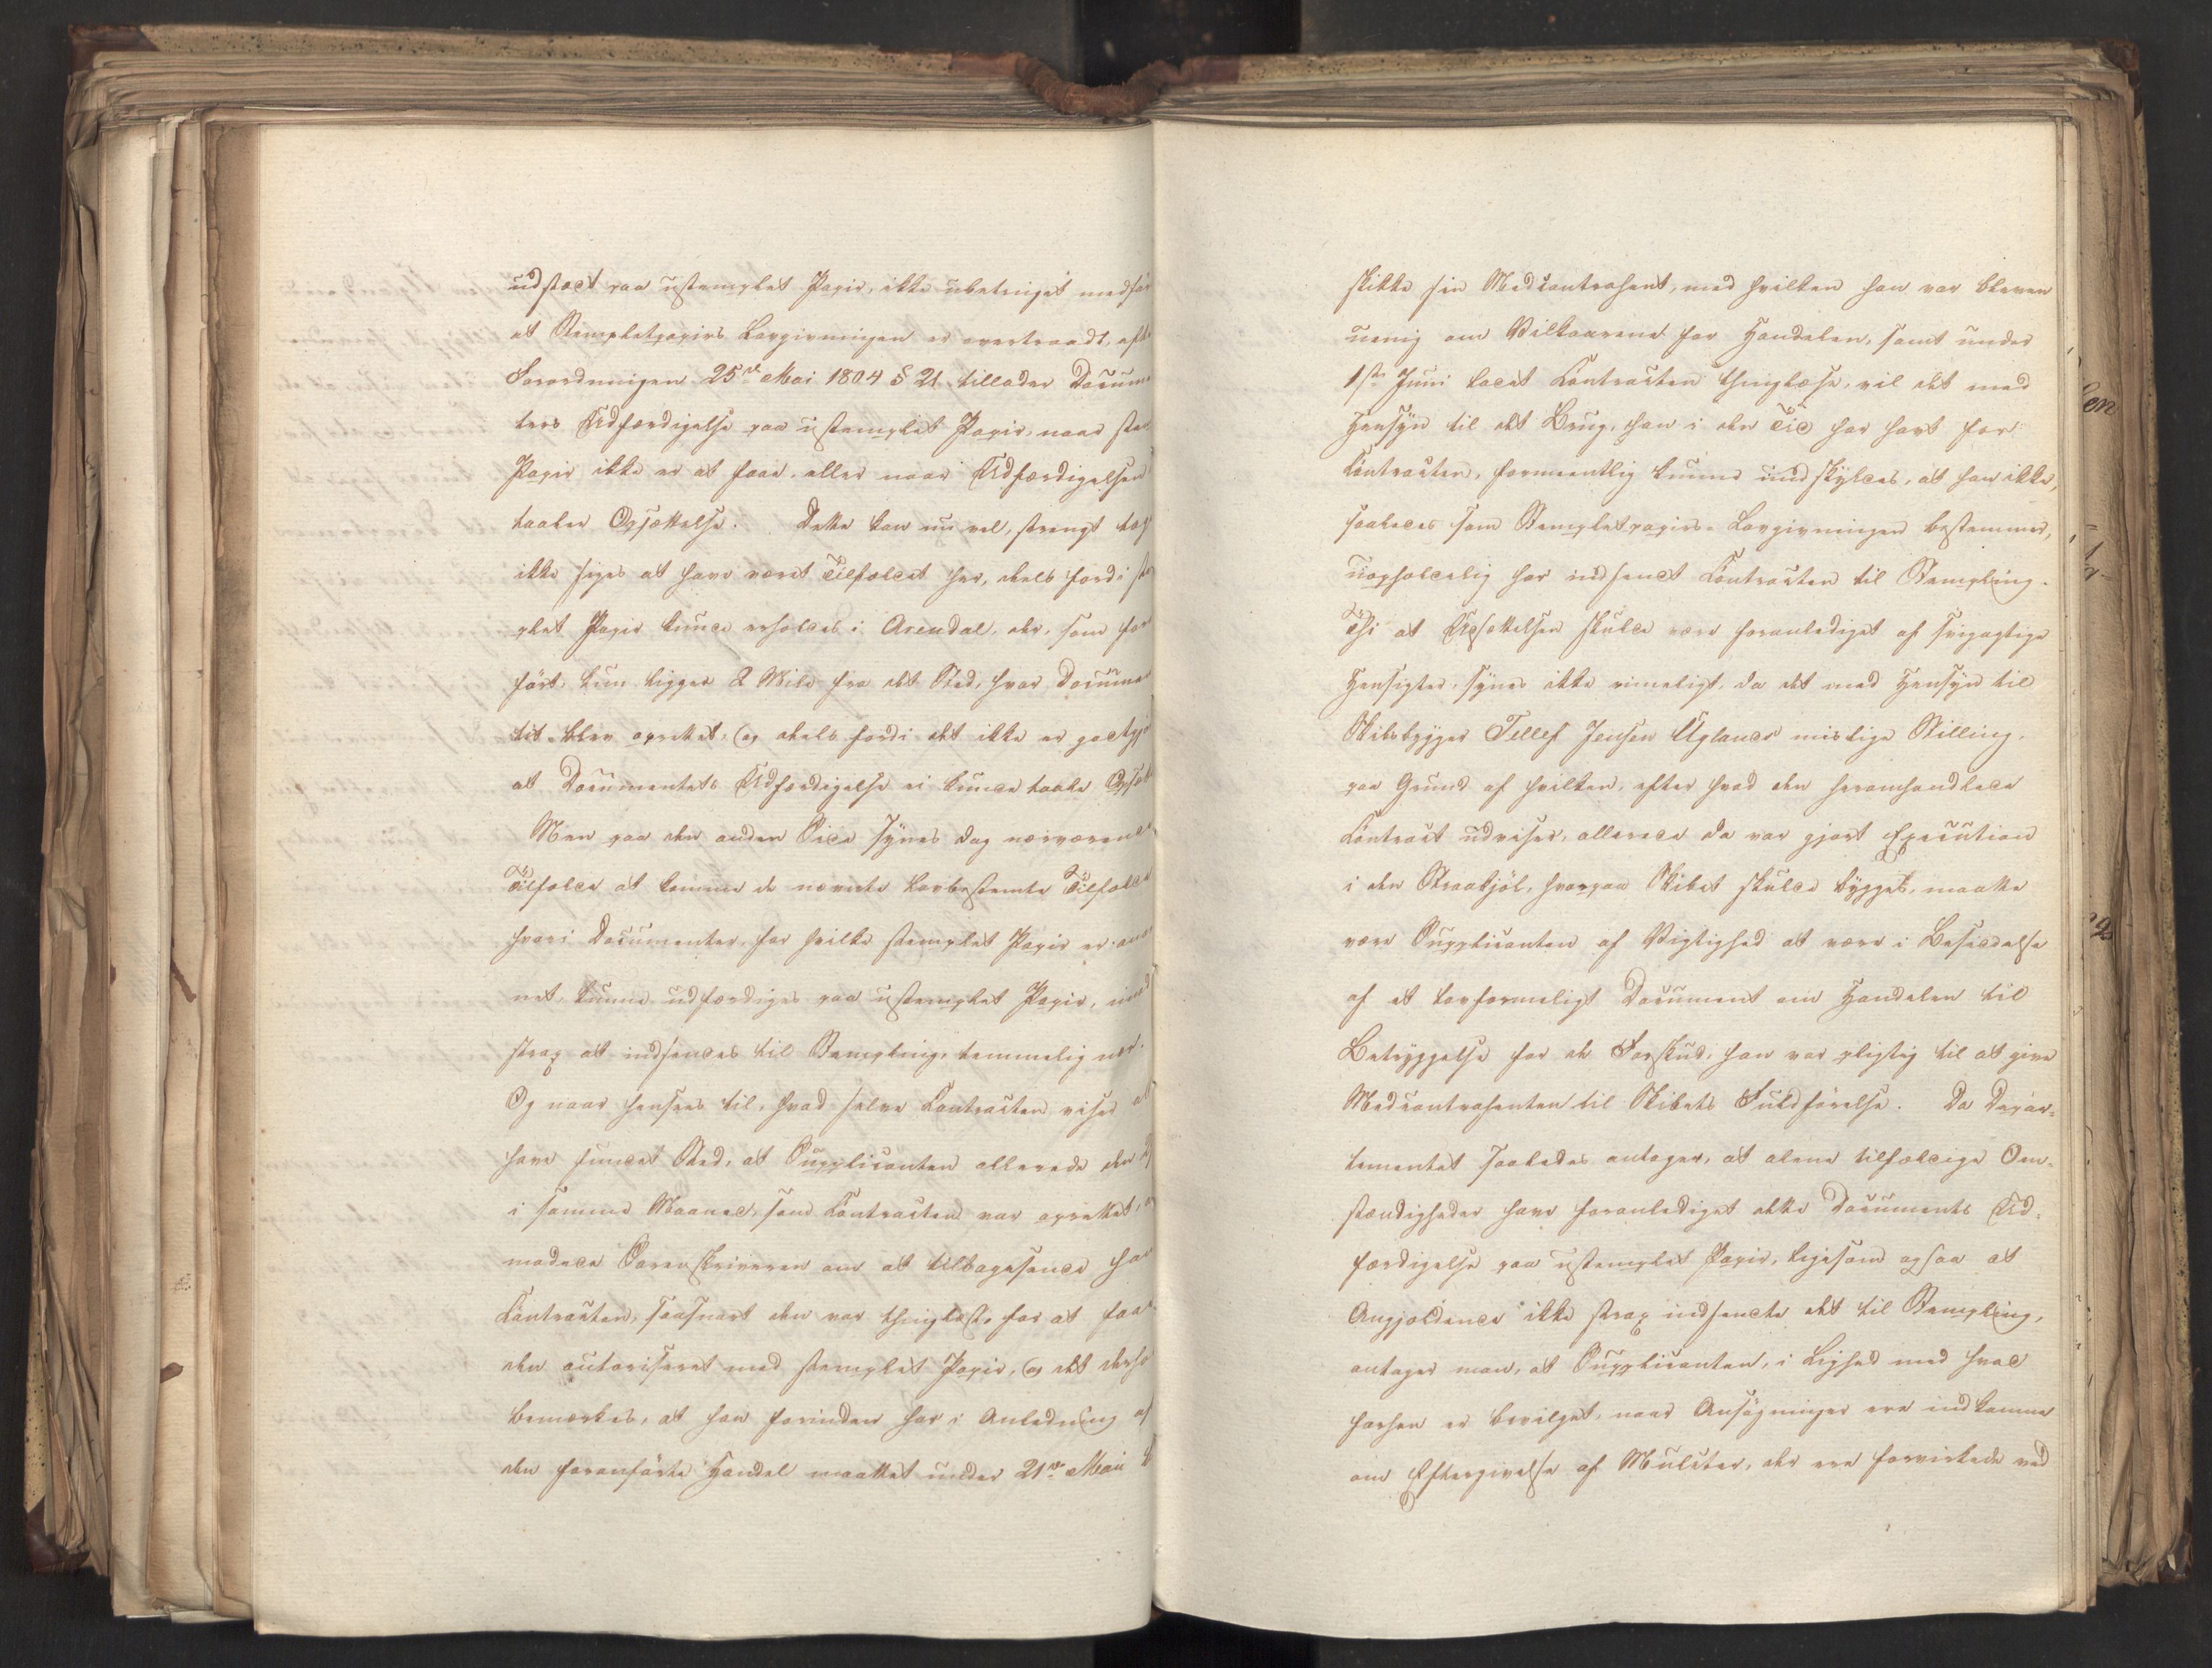 udstædt paa ustemplet Papir, ikke ubetinget medfør
at Stempletpapirs Lovgivningen er overtraadt, efte
Forordningen 25de Mai 1804 § 21 tillader Docume
ters Udfærdigelse paa ustemplet Papir, naar stem
Papir ikke er at faae, eller naar Udfærdigelsen
taaler Opsættelse. Dette kan nu vel, strengt tag
ikke siges at have været Tilfældet her, deels fordi ste
plet Papir kunde erholdes i Arendal, der, som for
ført, kun ligger 2 Mile fra det Sted, hvor Docume
tet blev oprettet, og deels fordi det ikke er godtgjo
at Documentets Udfærdigelse ei kunde taale Opsæt
Men paa den anden Side synes dog nærværende
Tilfælde at komme de nævnte lovbestemte Tilfælde
hvori Documenter, for hvilke stemplet Papir er anor
net, kunne udfærdiges paa ustemplet Papir, imod
strax at indsendes til Stempling, temmelig nær.
Og naar hensees til, hvad selve Contracten viser at
have fundet Sted, at Supplicanten allerede den
i samme Maaned, som Contracten var oprettet, a
modede Sorenskriveren om at tilbagesende ham
Contracten, saasnart den var thinglæst, for at faae
den autoriseret med stemplet Papir, og det derho
bemærkes, at han forinden har i Anledning af
den foranførte Handel maattet under 21de Mai
skikke sin Medcontrahent, med hvilken han var bleven
uenig om Vilkaarene for Handelen, samt under
1ste Juni ladet Contracten thinglæse, vil det med
Hensyn til det Brug, han i den Tid har havt for
Contracten, formeentlig kunne undskyldes, at han ikke,
saaledes som Stempletpapirs-Lovgivningen bestemmer,
uopholdelig har indsendt Contracten til Stempling.
Thi at Udsættelsen skulde være foranlediget af svigagtige
Hensigter, synes ikke rimeligt, da det med Hensyn til
Skibsbygger Tellef Jensen Uglands mislige Stilling,
paa Grund af hvilken, efter hvad den heromhandlede
Contract udviser, allerede da var gjort Execution
i den Straakjøl, hvorpaa Skibet skulde bygges, maatte
være Supplicanten af Vigtighed at være i Besiddelse
af et lovformeligt Document om Handelen til
Betryggelse for de Forskud, han var pligtig til at give
Medcontrahenten til Skibets Fuldførelse. Da Depar-
tementet saaledes antager, at alene tilfældige Om-
stændigheder have foranlediget dette Documents Ud-
færdigelse paa ustemplet Papir, ligesom ogsaa at
Angjældende ikke strax indsendte det til Stempling,
antager man, at Supplicanten, i Lighed med hvad
forhen er bevilget, naar Ansøgninger ere indkomne
om Eftergivelse af Mulcter, der ere forvirkede ved